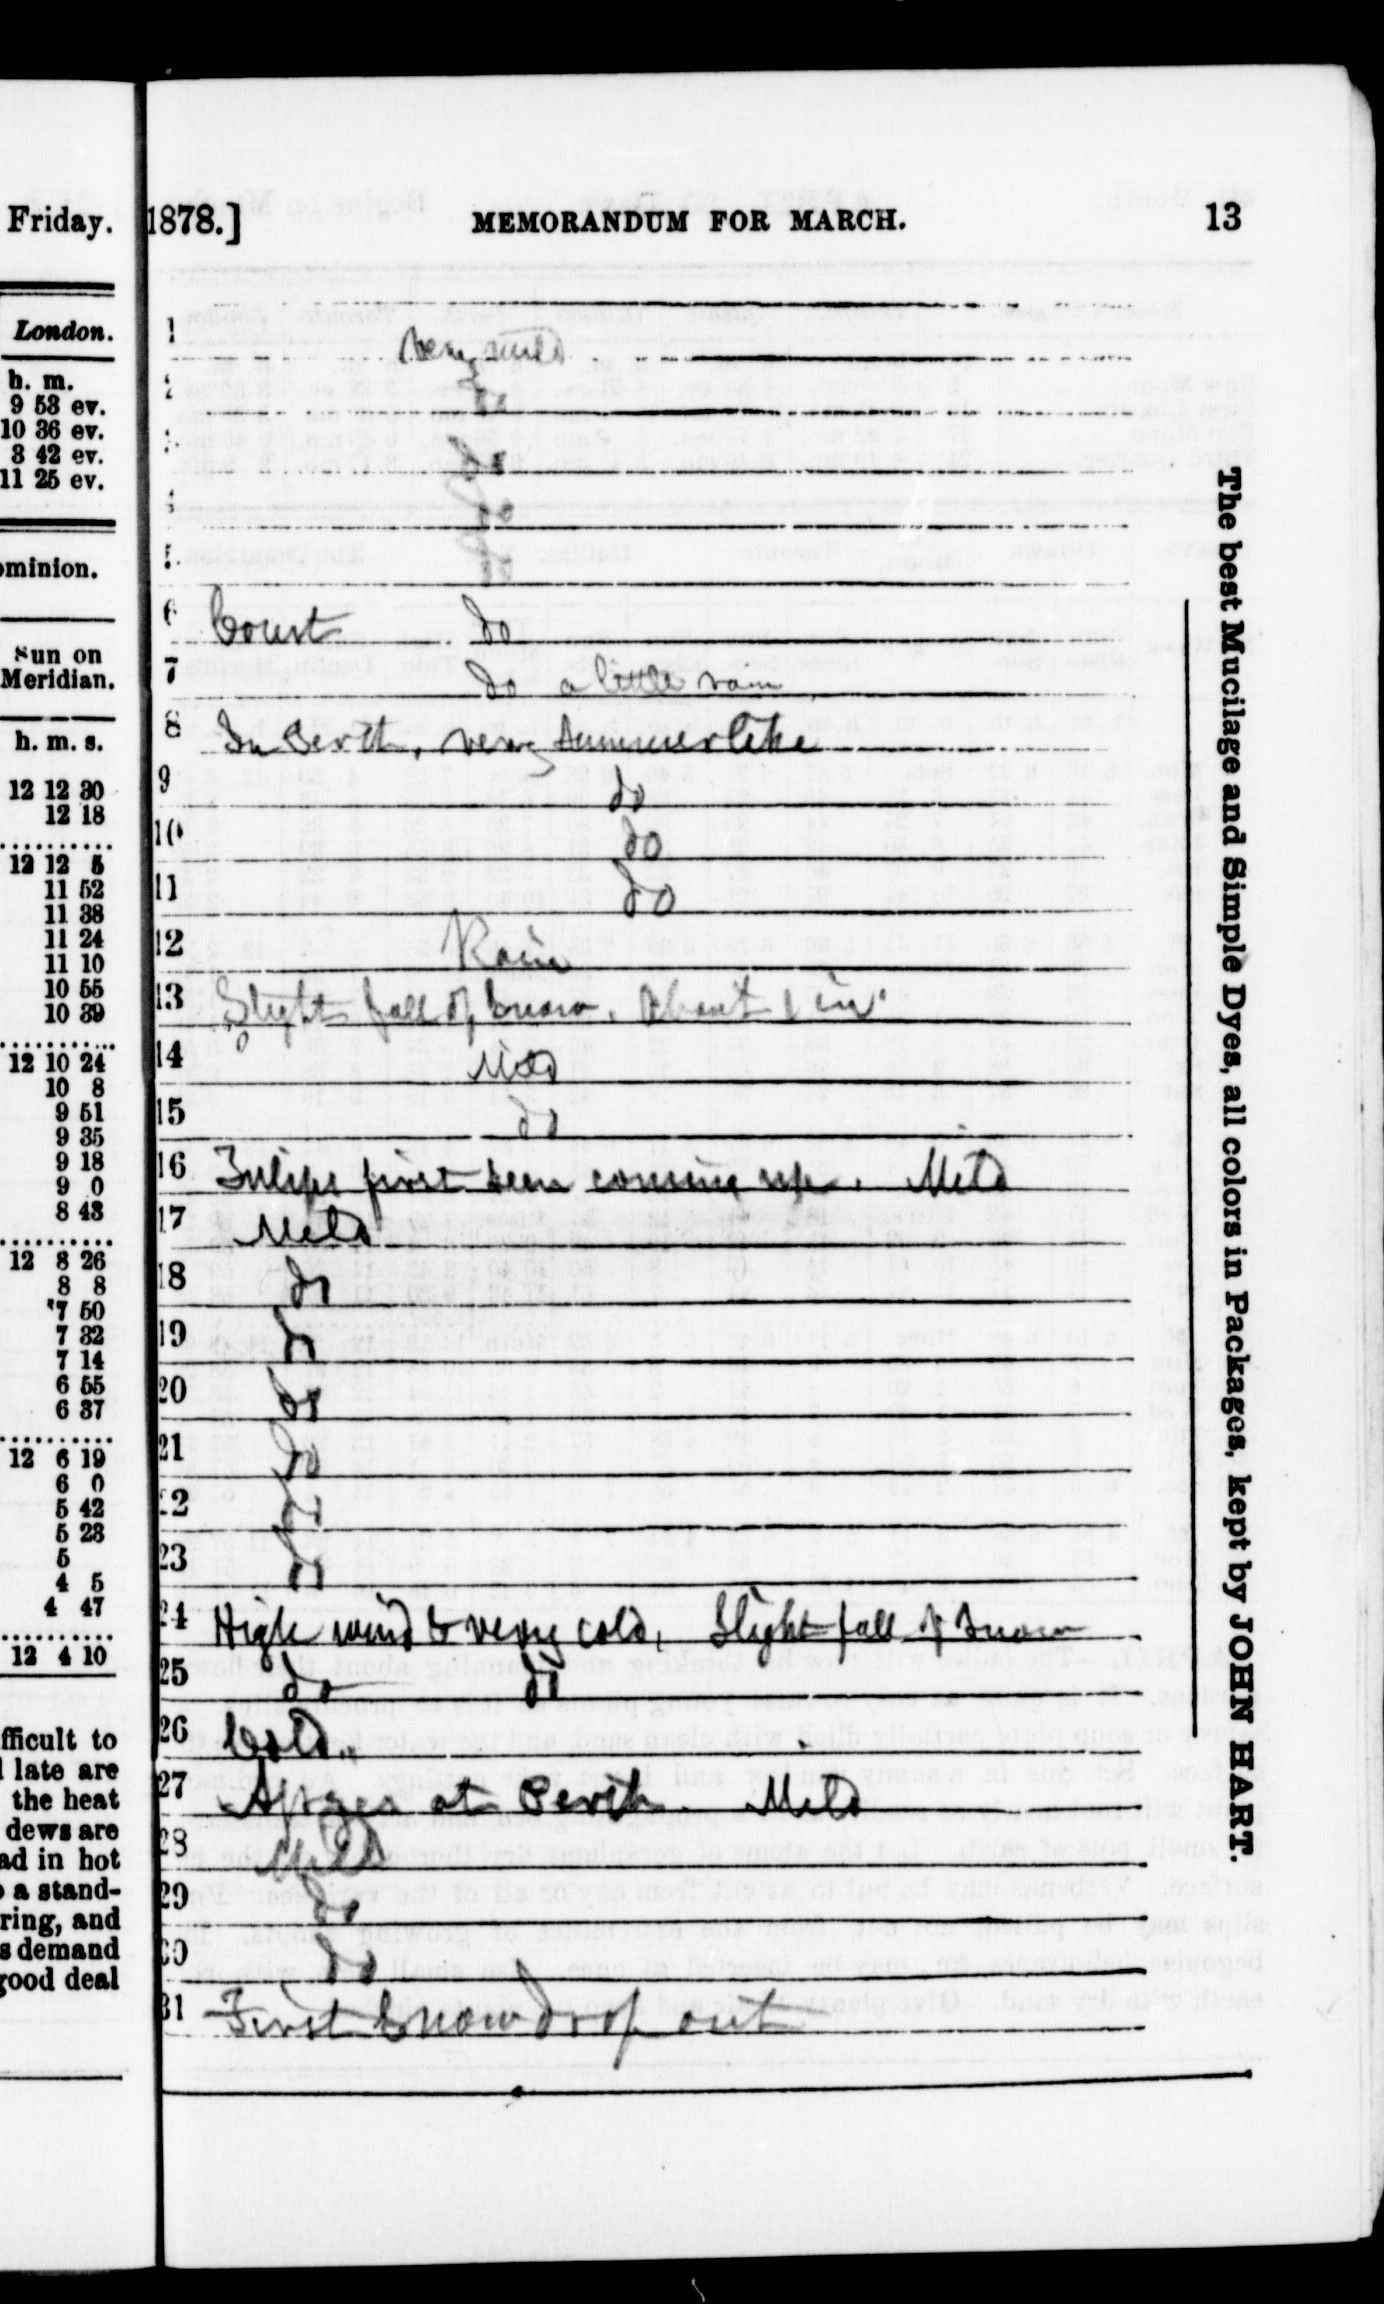 Friday.
London.
h. m.
9 53 ev.
10 36 ev.
8 42 ev.
11 25 ev.
ominion.
Sun on
Meridian.
h. m. s.
12 12 30
12 18
12 12 5
11 52
11 38
11 24
11 10
10 55
10 39
12 10 24
10 8
9 51
9 35
9 18
9 0
8 43
12 8 26
8 8
7 50
7 32
7 14
6 55
6 37
12 6 19
6 0
5 42
5 23
5
4 5
4 47
12 4 10
fficult to
late are
the heat
dews are
ad in hot
a stand-
ring, and
s demand
good deal
1878.] MEMORANDUM FOR MARCH. 13
1 Very mild
2 do
3 do
4 do
5 do
6 Court do
7 do a little rain
8 In Perth, very summerlike
9 do
10 do
11 do
12 Rain
13 Slight fall of snow. About 1 in
14 Mild
15 do
16 Tulips first seen coming up. Mild
17 Mild
18 do
19 do
20 do
21 do
22 do
23 do
24 High wind & very cold, Slight fall of snow
25 do do
26 Cold.
27 at Perth. Mild
28 Mild
29 do
30 do
31 First Snowdrop out
The best Mucilage and Simple Dyes, all colors in Packages, kept by JOHN HART.